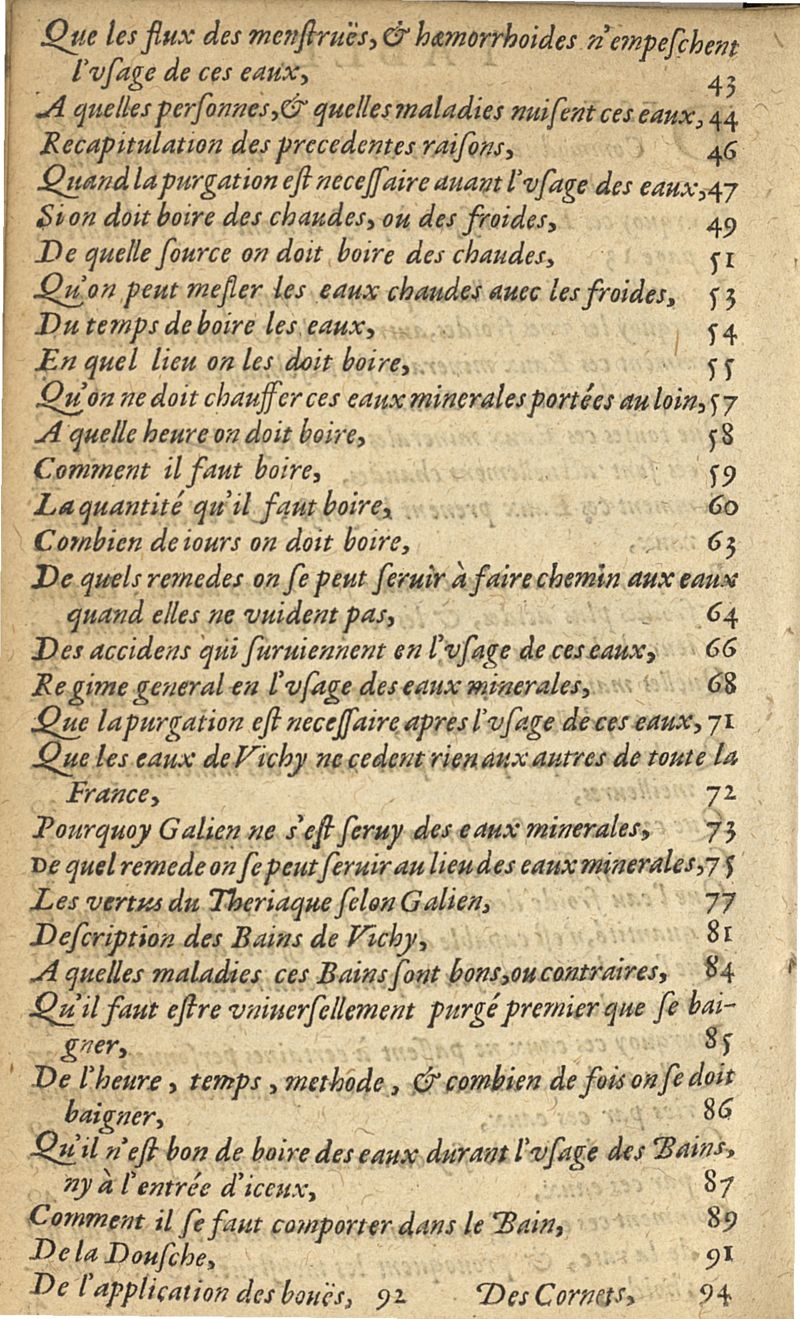 Que les flux des menſtruës, & hæmorrhoides n'empeſchent
l'vſage de ces eaux, 43
A quelles perſonnes, & quelles maladies nuiſent ces eaux, 44
Recapitulation des precedentes raiſons, 46
Quand la purgation eſt neceſſaire auant l'vſage des eaux, 47
Si on doit boire des chaudes, ou des froides, 49
De quelle ſource on doit boire des chaudes, 51
Qu'on peut meſler les eaux chaudes auec les froides, 53
Du temps de boire les eaux, 54
En quel lieu on les doit boire, 55
Qu'on ne doit chauffer ces eaux minerales portées au loin, 57
A quelle heure on doit boire, 58
Comment il faut boire, 59
La quantité qu'il faut boire, 60
Combien de iours on doit boire, 63
De quels remedes on ſe peut ſeruir à faire chemin aux eaux
quand elles ne vuident pas, 64
Des accidens qui ſuruiennent en l'vſage de ces eaux, 66
Regime general en l'vſage des eaux minerales, 68
Que la purgation eſt neceſſaire apres l'vſage de ces eaux, 71
Que les eaux de Vichy ne cedent rien aux autres de toute la
France, 72
Pourquoy Galien ne s'eſt ſeruy des eaux minerales, 73
De quel remede on ſe peut ſeruir au lieu des eaux minerales, 75
Les vertus du Theriaque ſelon Galien, 77
Deſcription des Bains de Vichy, 81
A quelles maladies ces Bains ſont bons, ou contraires, 84
Qu'il faut eſtre vniuerſellement purgé premier que ſe bai-
gner, 85
De l'heure, temps, methode, & combien de fois on ſe doit
baigner, 86
Qu'il n'eſt bon de boire des eaux durant l'vſage des Bains,
ny à l'entrée d'iceux, 87
Comment il ſe faut comporter dans le Bain, 89
De la Douſche, 91
De l'application des bouës, 92 Des Cornets, 94